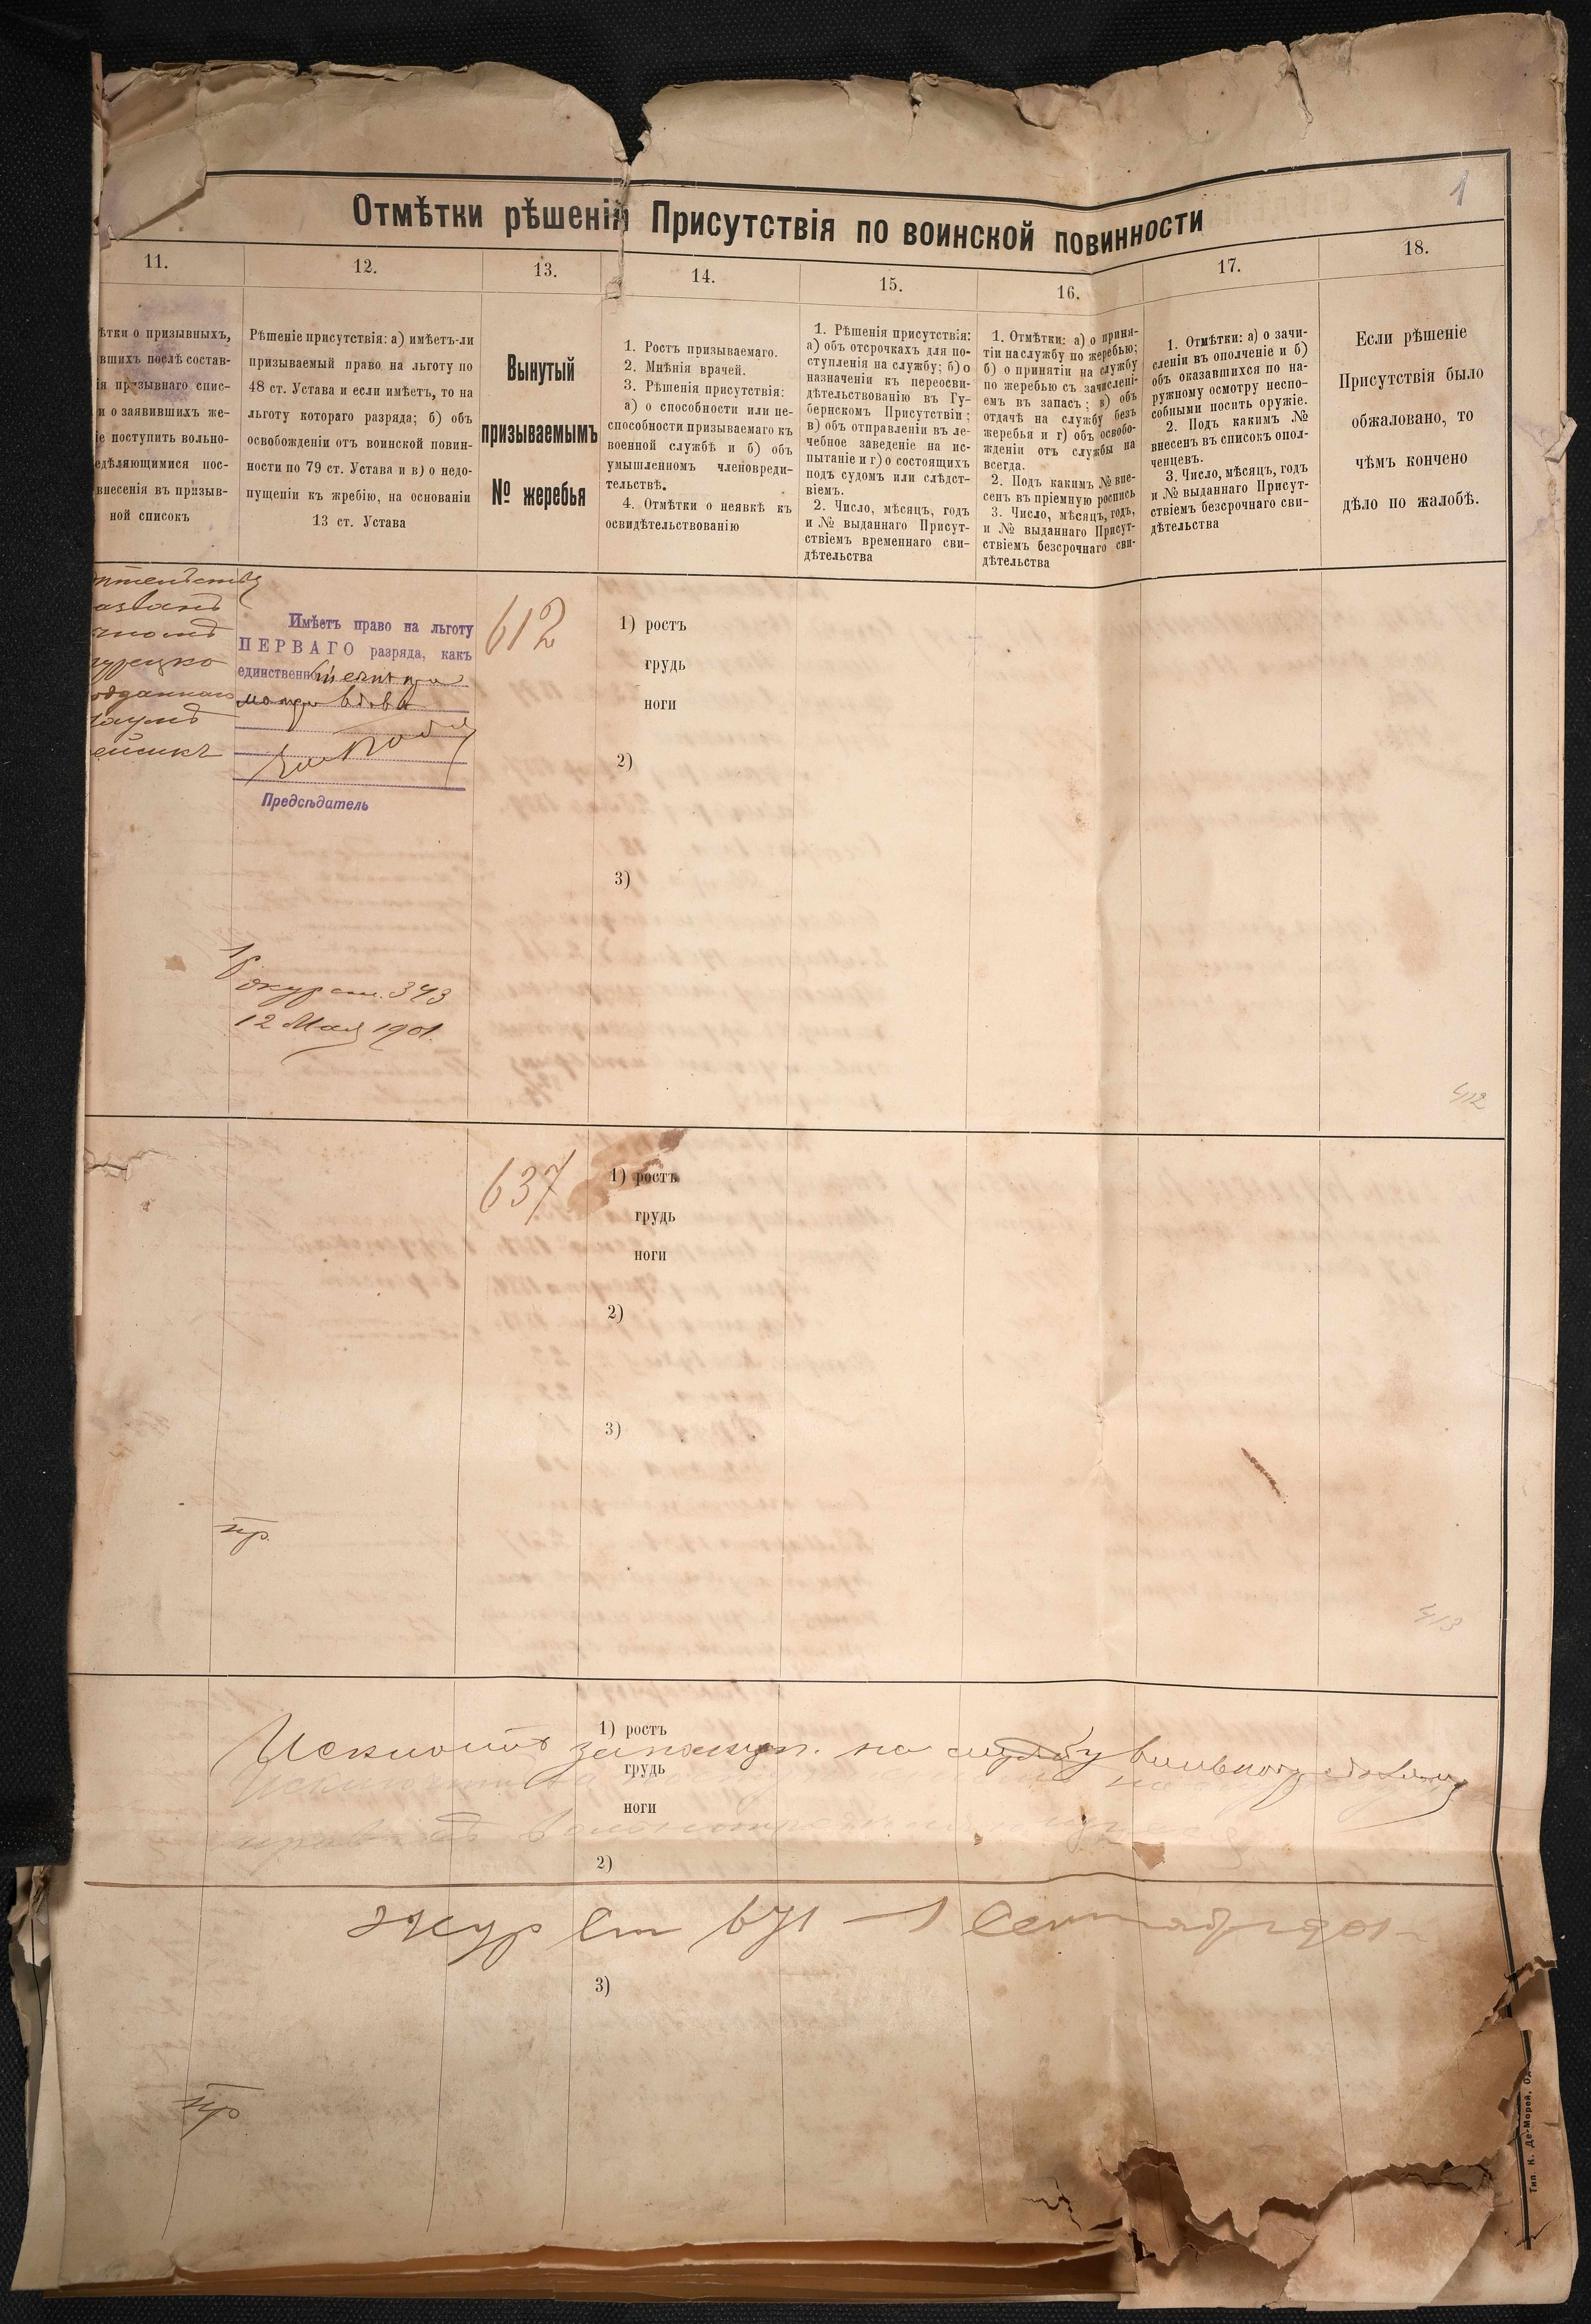 1
Отмѣтки рѣшеній Присутствія по воинской повинности
11.
12.
13.
14.
15.
16.
17.
18.
ѣтки о призывныхъ,
вшихъ послѣ состав-
ія призывнаго спис-
и о заявившихъ же-
іе поступить вольно-
едѣляющимися пос-
внесенія въ призыв-
ной списокъ
Рѣшеніе присутствія: а) имѣетъ-ли
призываемый право на льготу по
48 ст. Устава и если имѣетъ, то на
льготу котораго разряда; б) объ
освобожденіи отъ воинской повин-
ности по 79 ст. Устава и в) о недо-
пущеніи къ жребію, на основаніи
13 ст. Устава
Вынутый
призываемымъ
№ жеребья
1. Ростъ призываемаго.
2. Мнѣнія врачей.
3. Рѣшенія присутствія:
а) о способности или не-
способности призываемаго къ
военной службѣ и б) объ
умышленномъ членовреди-
тельствѣ.
4. Отмѣтки о неявкѣ къ
освидѣтельствованію
1. Рѣшенія присутствія:
а) объ отсрочкахъ для по-
ступленія на службу; б) о
назначеніи къ переосви-
дѣтельствованію въ Гу-
бернскомъ Присутствіи;
в) объ отправленіи въ ле-
чебное заведеніе на ис-
пытаніе и г) о состоящихъ
подъ судомъ или слѣдст-
віемъ.
2. Число, мѣсяцъ, годъ
и № выданнаго Присут-
ствіемъ временнаго сви-
дѣтельства
1. Отмѣтки: а) о приня-
тіи на службу по жеребью;
б) о принятіи на службу
по жеребью съ зачислені-
емъ въ запасъ; в) объ
отдачѣ на службу безъ
жеребья и г) объ освобо-
жденіи отъ службы на
всегда.
2. Подъ какимъ № вне-
сенъ въ пріемную роспись
3. Число, мѣсяцъ, годъ,
и № выданнаго Присут-
ствіемъ безсрочнаго сви-
дѣтельства
1. Отмѣтки: а) о зачи-
сленіи въ ополченіе и б)
объ оказавшихся по на-
ружному осмотру неспо-
собными носить оружіе.
2. Подъ какимъ №
внесенъ въ списокъ опол-
ченцевъ.
3. Число, мѣсяцъ, годъ
и № выданнаго Присут-
ствіемъ безсрочнаго сви-
дѣтельства
Если рѣшеніе
Присутствія было
обжаловано, то
чѣмъ кончено
дѣло по жалобѣ.
турецко
одданнаго
Имѣетъ право на льготу
ПЕРВАГО разряда, какъ
единственн
вдова
Предсѣдатель
журст. 343
12 Мая 1901.
612
1) ростъ
грудь
ноги
2)
3)
412
637
1) ростъ
грудь
ноги
2)
3)
пр.
413
1) ростъ
на службу
грудь
ноги
2)
Жур Ст 671 — 1 Сентября 901
3)
пр
Тип. К. Де-Морей, Од